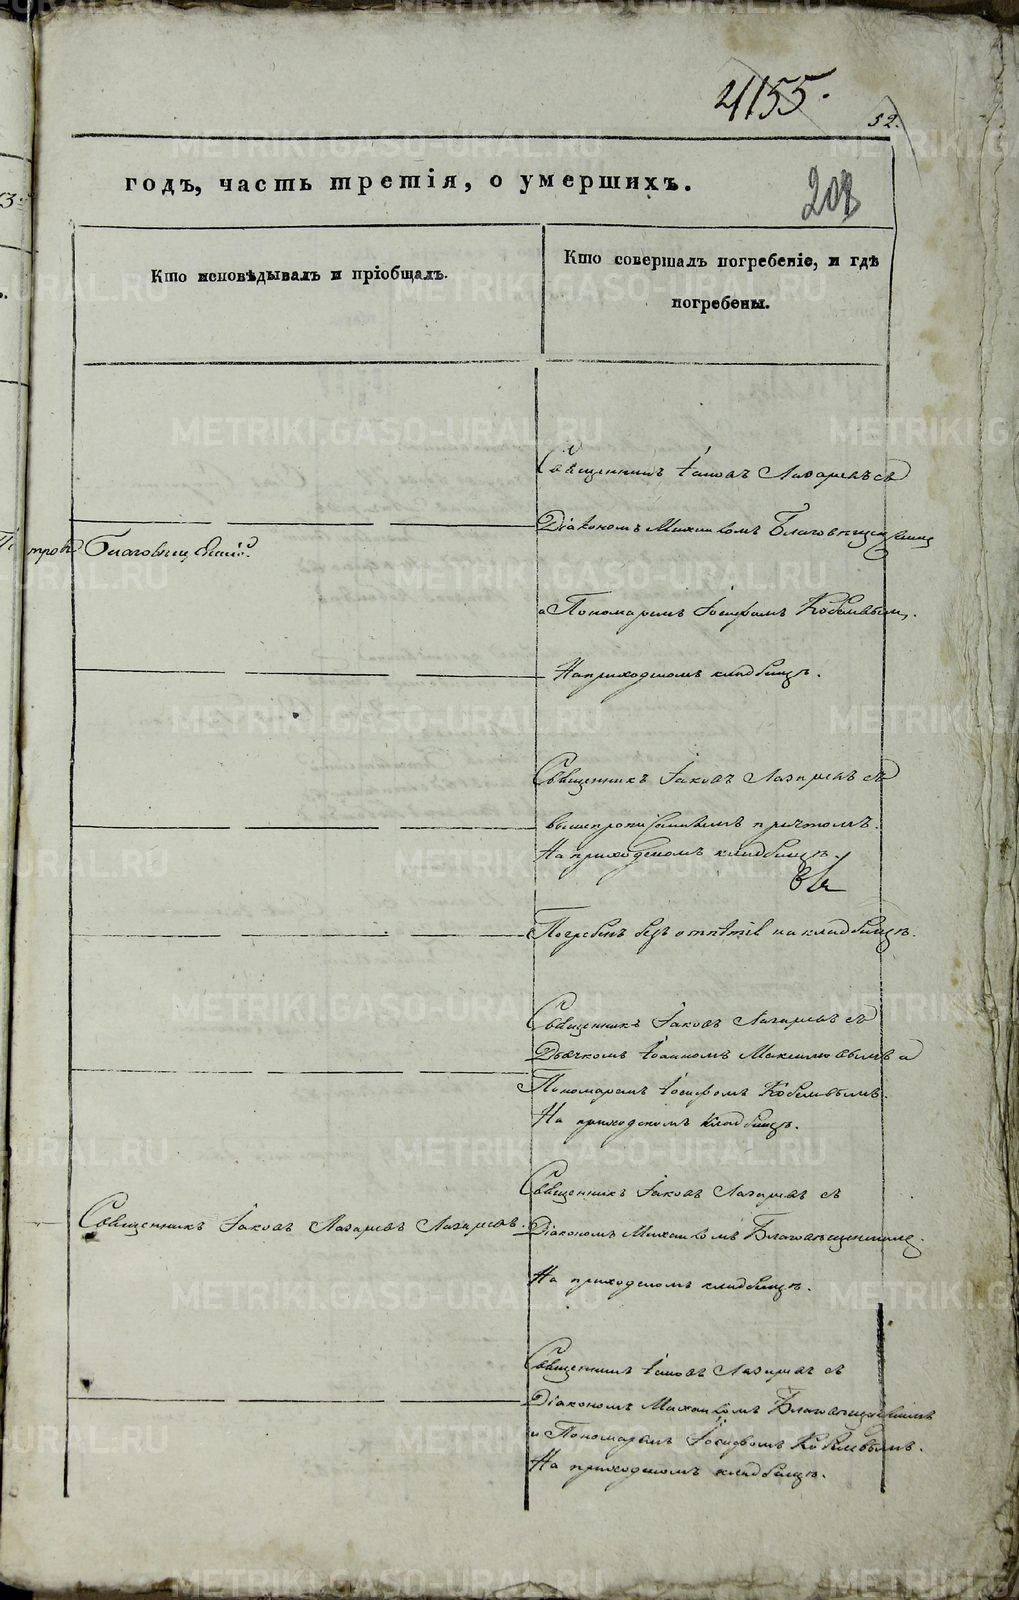 4155.
52.
годъ, часть третія, о умершихъ.
208
Кто исповѣдывалъ и пріобщалъ.
Кто совершалъ погребеніе, и гдѣ
погребены.
Священникъ Іаковъ Лазаревъ съ
Діакономъ Михаиломъ Благовѣщенскимъ
Благовѣщенскій.
и Пономаремъ Іосифомъ Кобелевымъ,
На приходскомъ кладбищѣ.
Священникъ Іаковъ Лазаревъ съ
вышепрописаннымъ причтомъ.
На приходскомъ кладбищѣ.
Погребенъ безъ отпѣтія на кладбищѣ.
Священникъ Іаковъ Лазаревъ съ
Дьячкомъ Іоанномъ Максимовымъ и
Пономаремъ Іосифомъ Кобелевымъ.
На приходскомъ кладбищѣ.
Священникъ Іаковъ Лазаревъ съ
Священникъ Іаковъ Лазаревъ Лазаревъ.
Діакономъ Михаиломъ Благовѣщенскимъ.
На приходскомъ кладбищѣ.
Священникъ Іаковъ Лазаревъ съ
Діакономъ Михаиломъ Благовѣщенскимъ
и Пономаремъ Іосифомъ Кобелевымъ.
На приходскомъ кладбищѣ.
METRIKI.GASO-URAL.RU